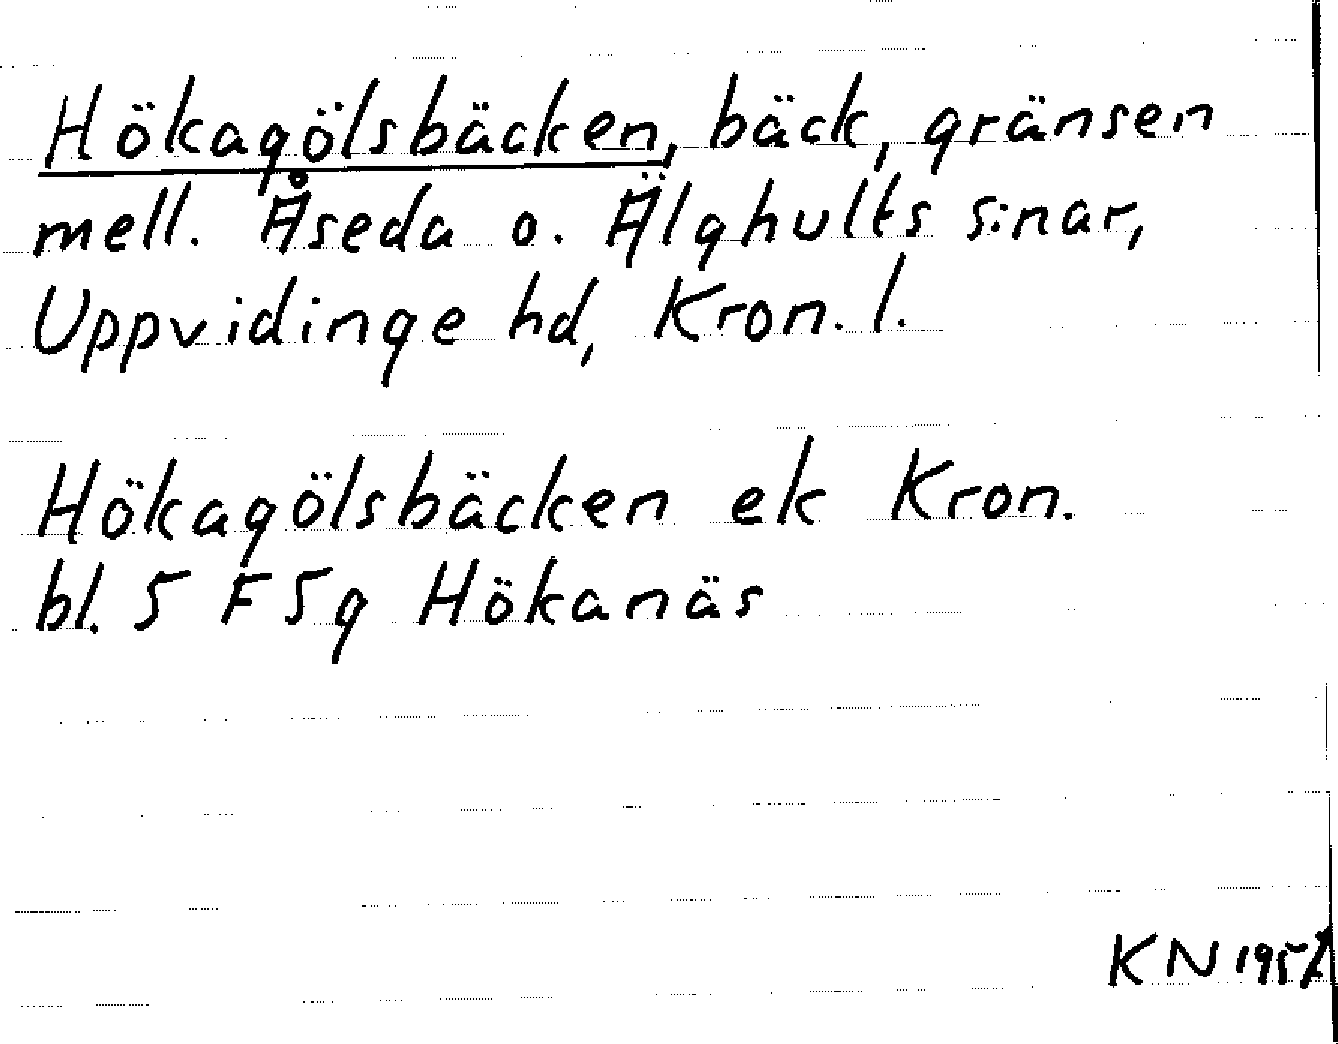 Hökagölsbäcken, bäck, gränsen
mell. Åseda o. Älghults s:nar,
Uppvidinge hd, Kron. l.
Hökagölsbäcken ek Kron.
bl. 5 F 5g Hökanäs
KN